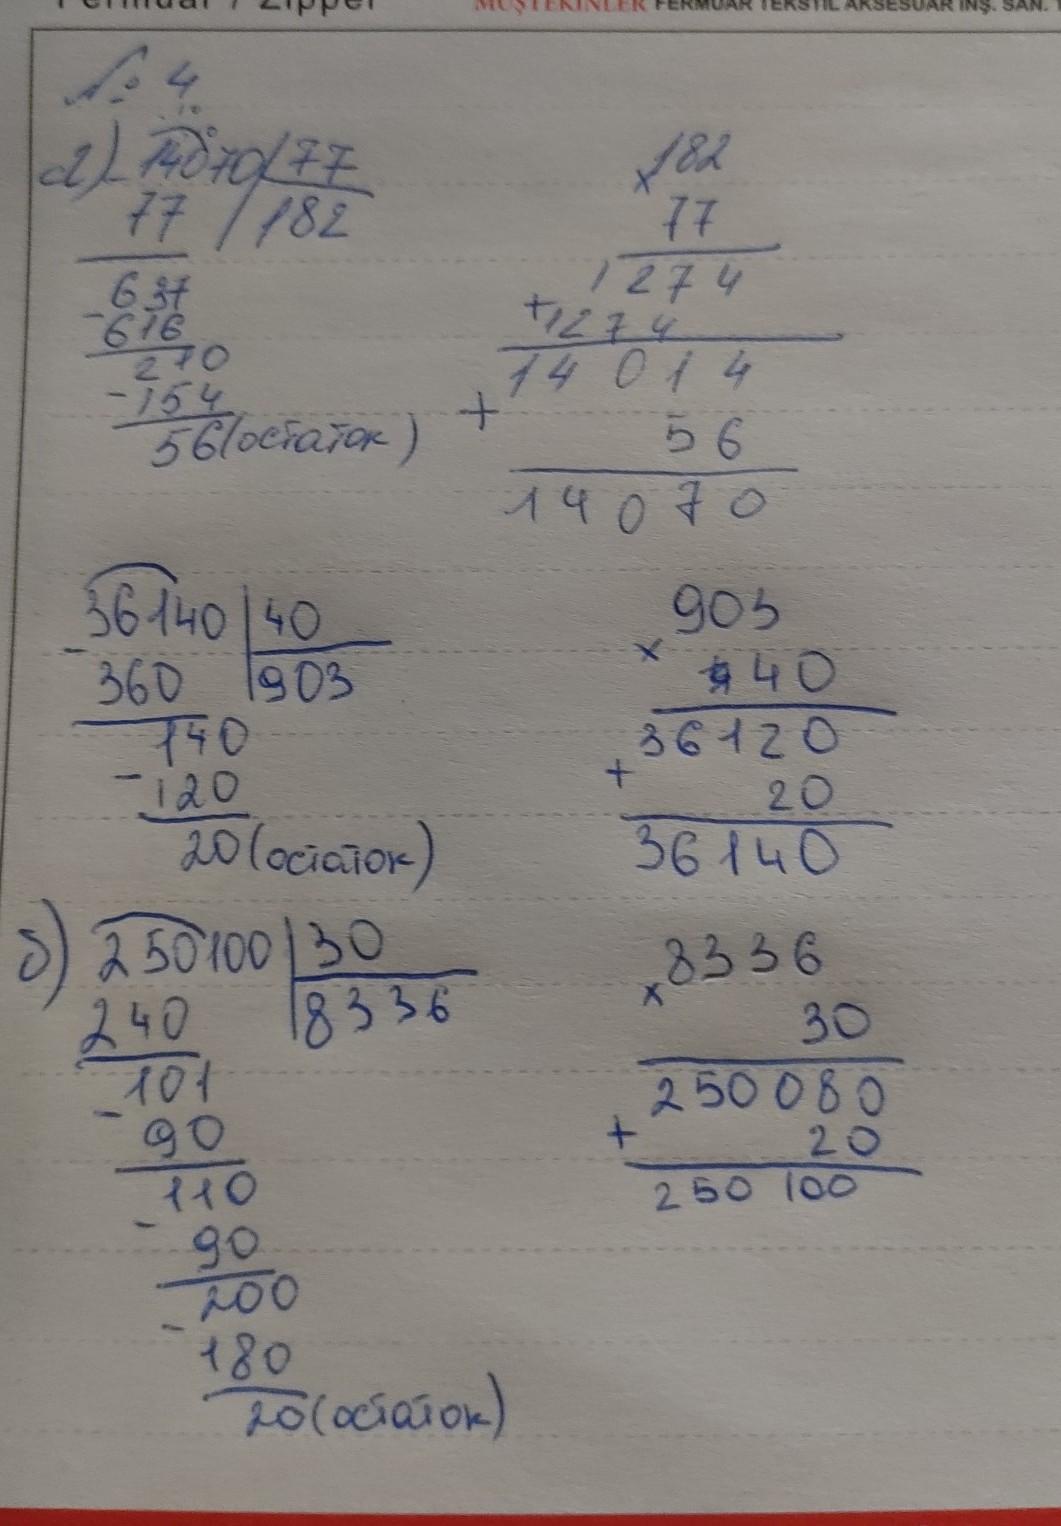 Fermuar / Zipper
MÜŞTEKİNLER FERMUAR TEKSTİL AKSESUAR İNŞ. SAN.
№ 4
а) - 14070 | 77
77 | 182
637
- 616
270
- 154
56 (остаток)
× 182
77
1274
+ 1274
14014
+ 56
14070
- 36140 | 40
360 | 903
140
- 120
20 (остаток)
903
× 40
36120
+ 20
36140
б) 250100 | 30
240 | 8336
101
- 90
110
- 90
200
- 180
20 (остаток)
× 8336
30
250080
+ 20
250100